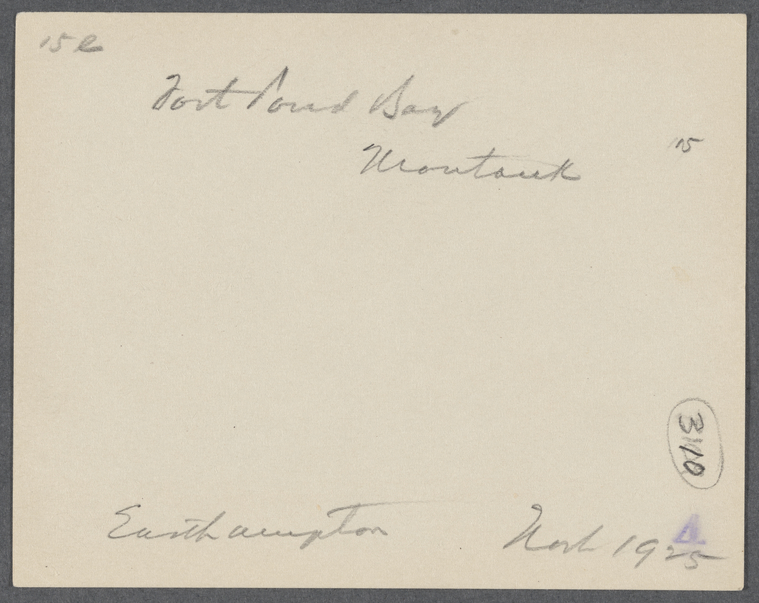 15 e
Fort Pond Bay
Montauk
115
3110
Easthampton
4
Nov. 1925